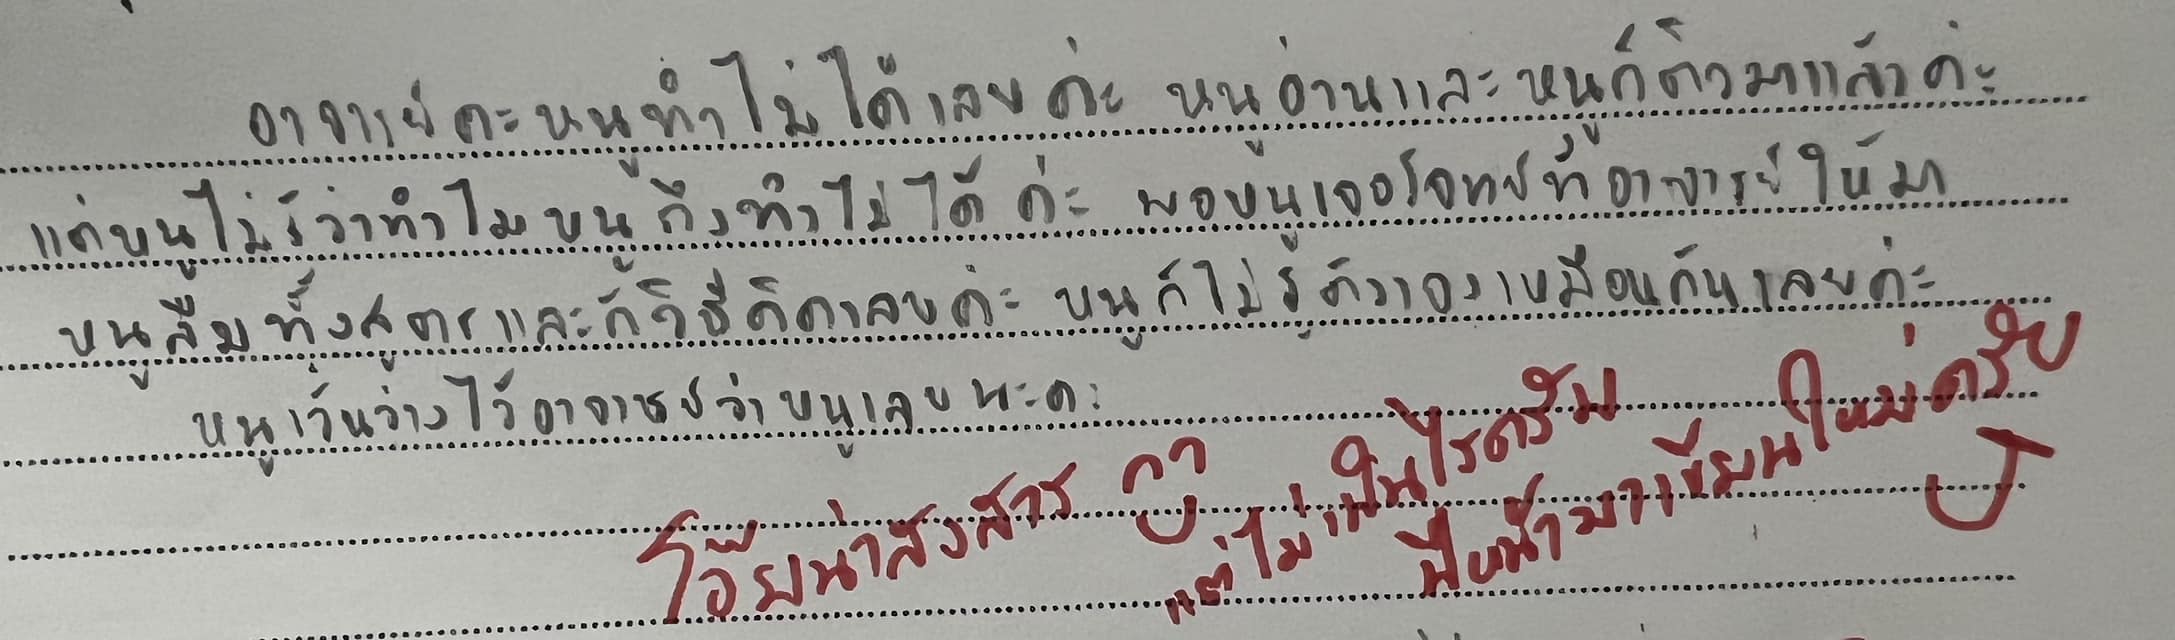 อาจารย์คะหนูทำไม่ได้เลยค่ะ หนูอ่านและหนูก็ติวมาแล้วค่ะ
แต่หนูไม่รู้ว่าทำไมหนูถึงทำไม่ได้ค่ะ พอหนูเจอโจทย์ที่อาจารย์ให้มา
หนูลืมทั้งสูตรและก็วิธีคิดเลยค่ะ หนูก็ไม่รู้ตัวเองเหมือนกันเลยค่ะ
หนูเว้นว่างไว้อาจารย์ว่าหนูเลยนะคะ
โอ๊ยน่าสงสาร
แต่ไม่เป็นไรครับ
ปีหน้ามาเรียนใหม่ครับ